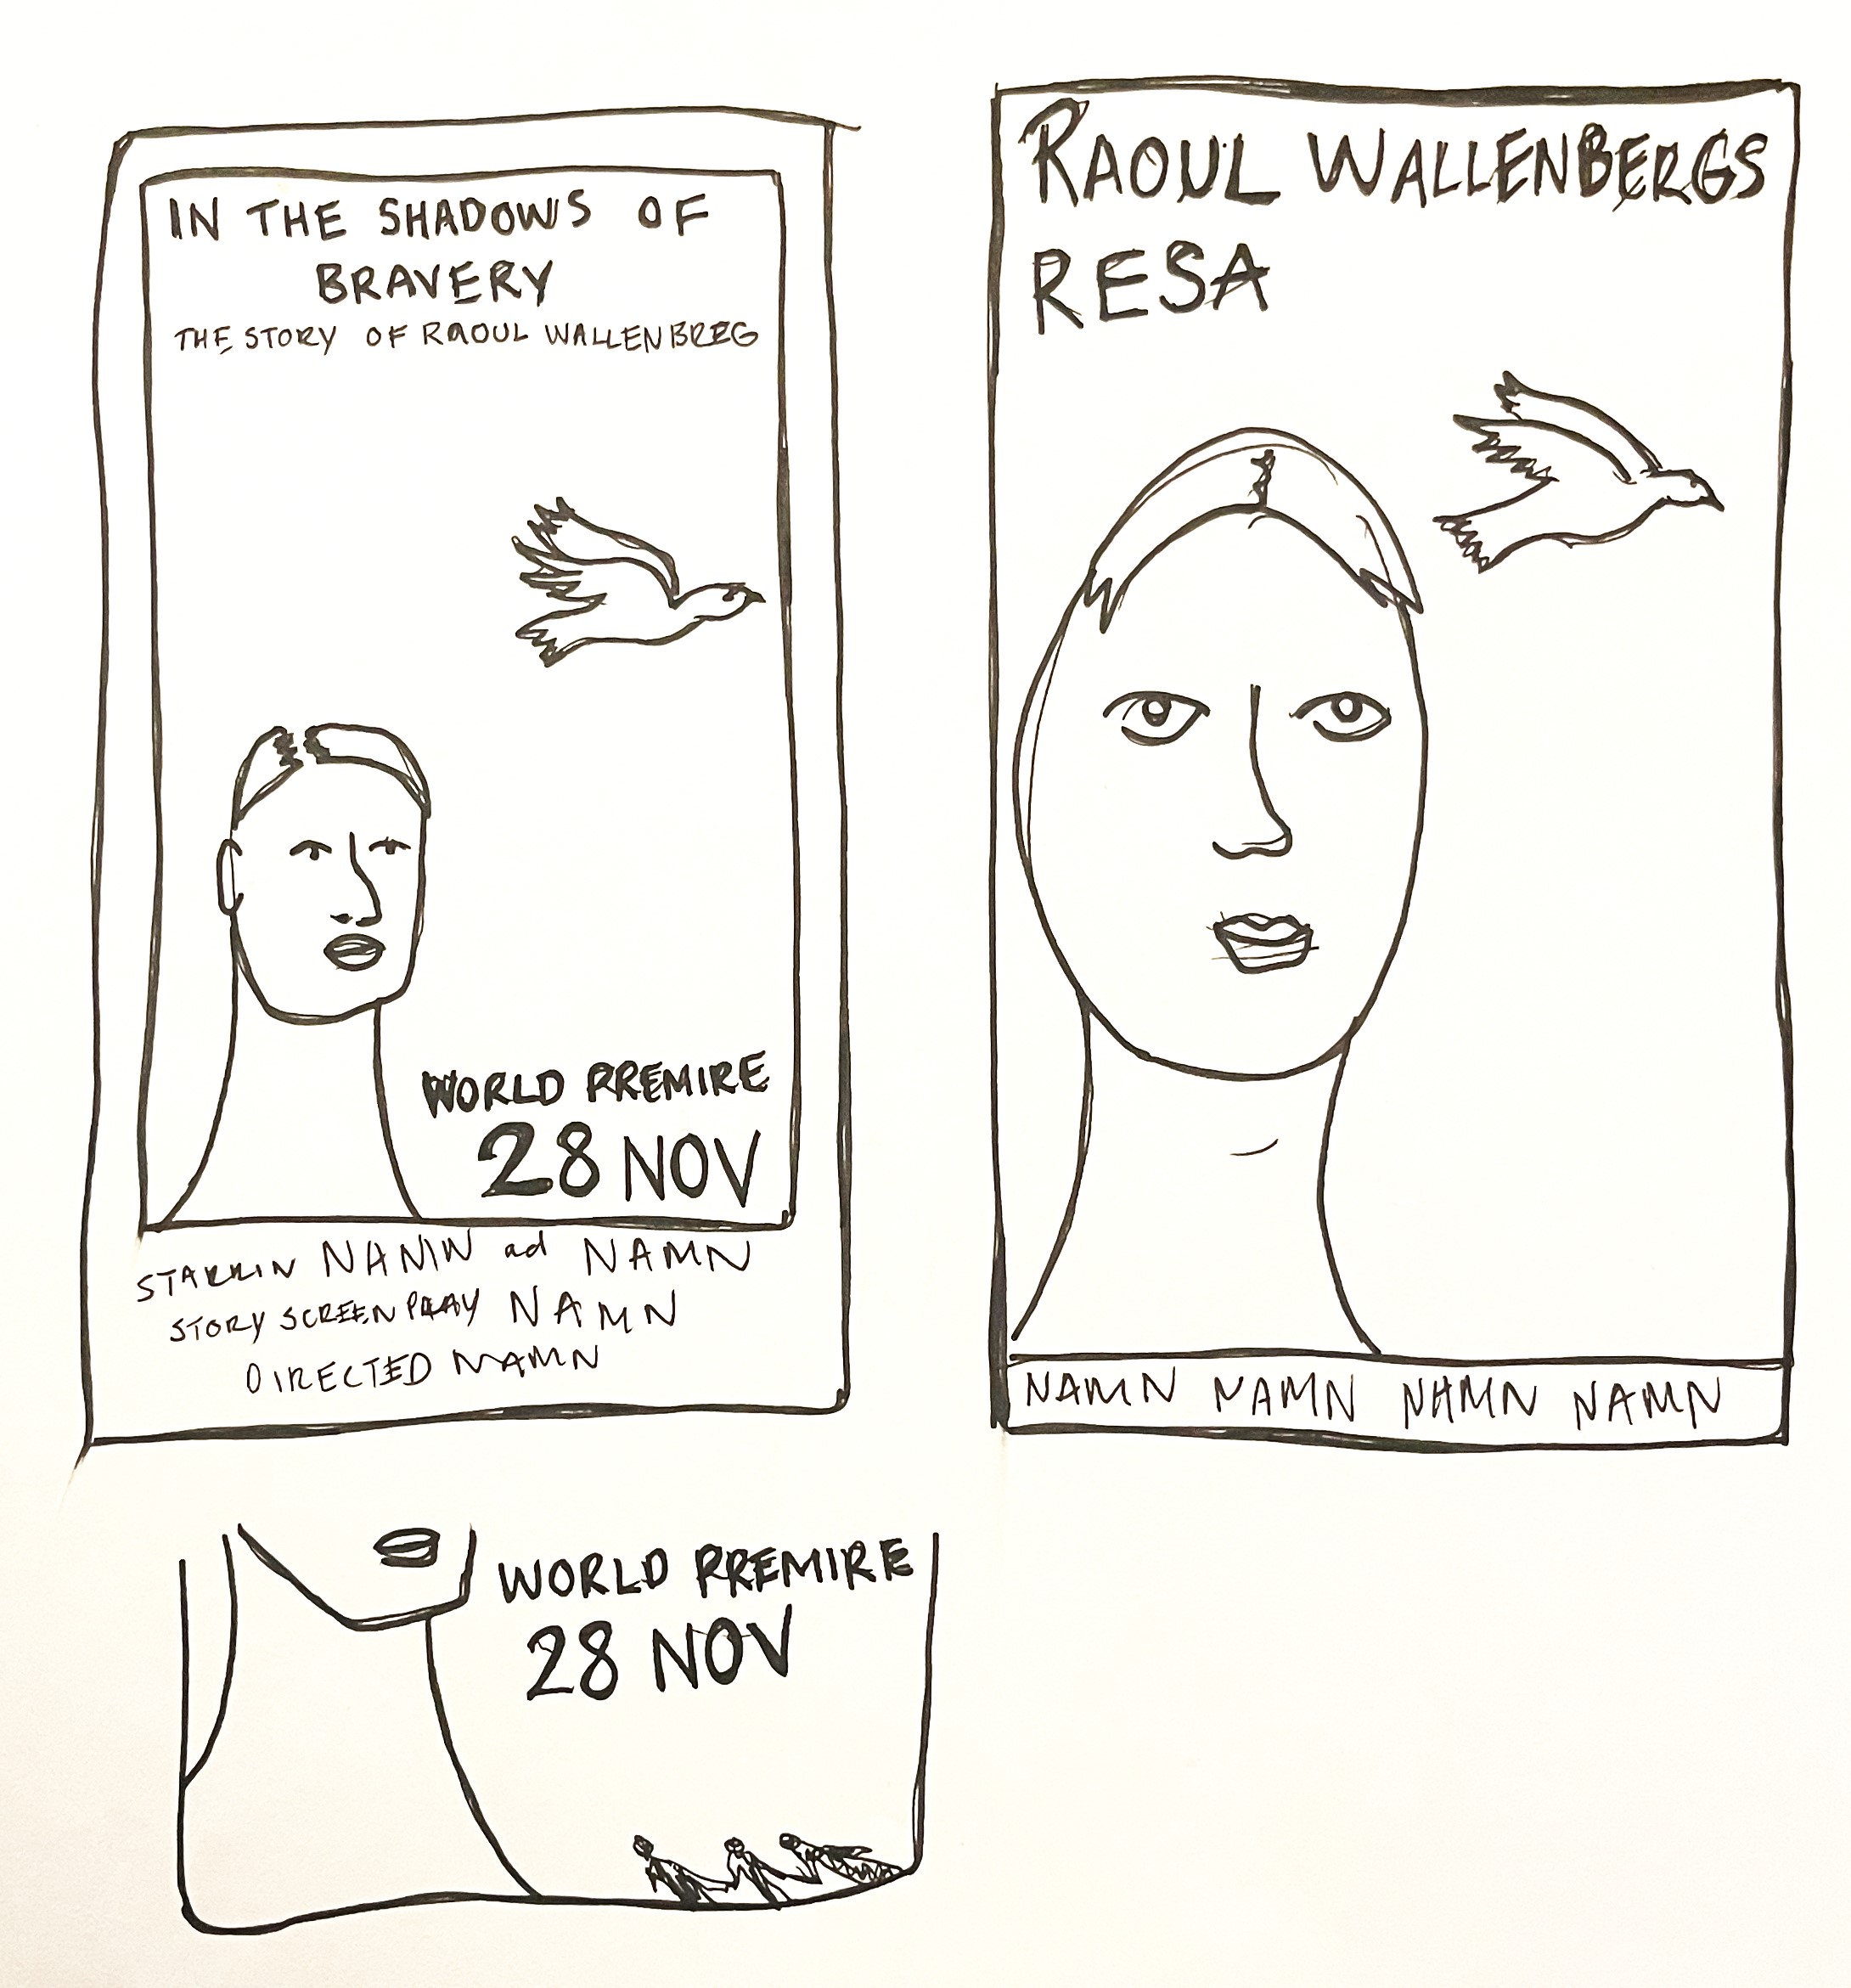 IN THE SHADOWS OF
BRAVERY
THE STORY OF RAOUL WALLENBREG
WORLD PREMIRE
28 NOV
STARRIN NAMN ad NAMN
STORY SCREEN PLAY NAMN
DIRECTED NAMN
RAOUL WALLENBERGS
RESA
NAMN NAMN NAMN NAMN
WORLD PREMIRE
28 NOV